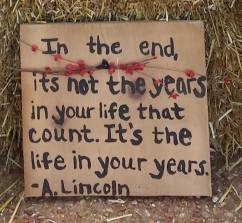 In the end,
it's not the years
in your life that
count. It's the
life in your years.
-A. Lincoln